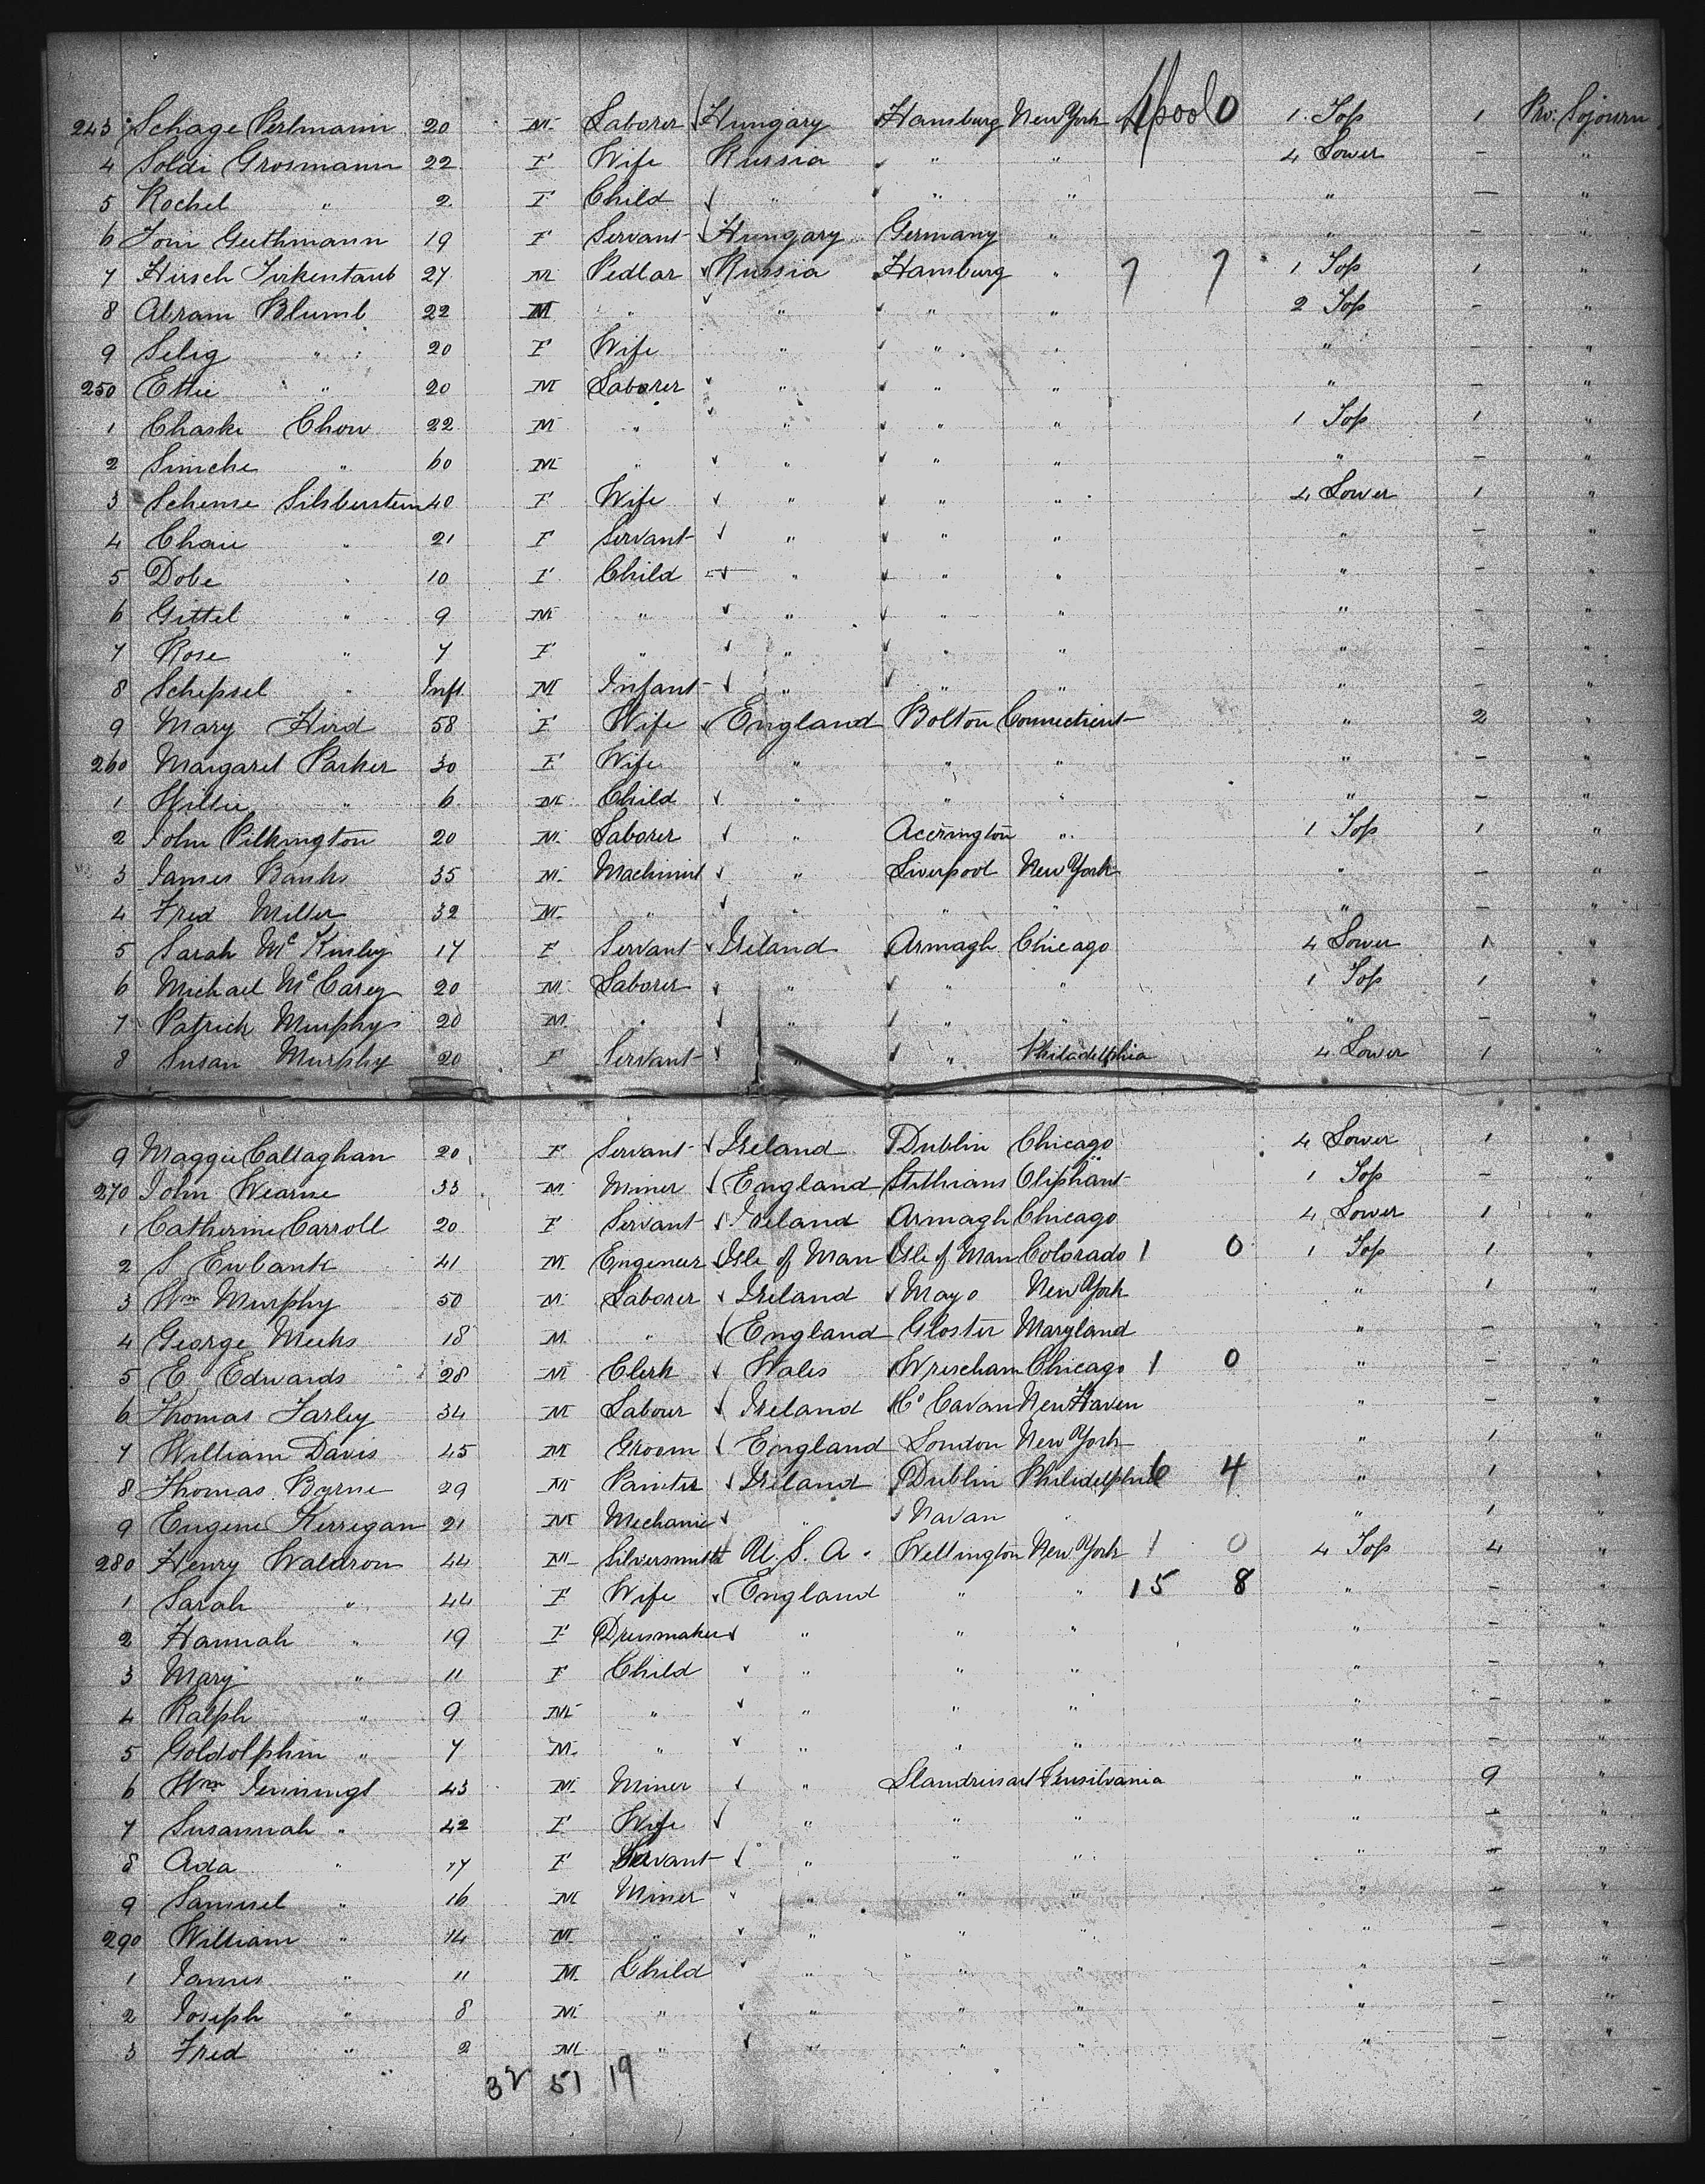 243 Schage Perlmann 20 M Laborer Hungary Hamburg New York L'pool 0 1 Top 1 Pro: Sojourn
4 Soldi Grosmann 22 F Wife Russia " " 4 Lower - "
5 Rochel " 2 F Child " " " " - "
6 Toni Guthmann 19 F Servant Hungary Germany " " - "
7 Hirsch Tirkentaub 27 M Pedlar Russia Hamburg " 7 7 1 Top 1 "
8 Abram Blumb 22 M " " " " 2 Top - "
9 Selig " 20 F Wife " " " " - "
250 Ettie " 20 M Laborer " " " " - "
1 Chaske Chon 22 M " " " " 1 Top 1 "
2 Simche " 60 M " " " " " - "
3 Scheme Silsberstein 40 F Wife " " " 4 Lower 1 "
4 Chan " 21 F Servant " " " " - "
5 Dobe " 10 F Child " " " " - "
6 Gittel " 9 M " " " " " - "
7 Rose " 7 F " " " " " - "
8 Schepsel " Inft. M Infant " " " " - "
9 Mary Hird 58 F Wife England Bolton Connecticut " 2 "
260 Margaret Parker 30 F Wife " " " " - "
1 Willie " 6 M Child " " " " - "
2 John Pilkington 20 M Laborer " Accrington " 1 Top 1 "
3 James Banks 35 M Machinist " Liverpool New York " - "
4 Fred Miller 32 M " " " " " - "
5 Sarah McKinley 17 F Servant Ireland Armagh Chicago 4 Lower 1 "
6 Michael McCarey 20 M Laborer " " " 1 Top 1 "
7 Patrick Murphy 20 M " " " " " - "
8 Susan Murphy 20 F Servant " " Philadelphia 4 Lower 1 "
9 Maggie Callaghan 20 F Servant Ireland Dublin Chicago 4 Lower 1 "
270 John Wearne 33 M Miner England Stithians Oliphant 1 Top - "
1 Catherine Carroll 20 F Servant Ireland Armagh Chicago 4 Lower 1 "
2 S Ewbank 41 M Engineer Isle of Man Isle of Man Colorado 1 0 1 Top 1 "
3 Wm Murphy 50 M Laborer Ireland Mayo New York " 1 "
4 George Meeks 18 M " England Gloster Maryland " - "
5 E Edwards 28 M Clerk Wales Wrexcham Chicago 1 0 " - "
6 Thomas Farley 34 M Labour Ireland Co Cavan New Haven " - "
7 William Davis 45 M Groom England London New York " 1 "
8 Thomas Byrne 29 M Painter Ireland Dublin Philidelphia 6 4 " 1 "
9 Eugene Kerrigan 21 M Mechanic " Navan " " 1 "
280 Henry Waldron 44 M Silversmith U.S.A. Wellington New York 1 0 4 Top 4 "
1 Sarah " 44 F Wife England " " 15 8 " - "
2 Hannah " 19 F Dressmaker " " " " - "
3 Mary " 11 F Child " " " " - "
4 Ralph " 9 M " " " " " - "
5 Goldolphin " 7 M " " " " " - "
6 Wm Jennings 43 M Miner " Pensilvania " 9 "
7 Susannah " 42 F Wife " " " " - "
8 Ada " 17 F Servant " " " " - "
9 Samuel " 16 M Miner " " " " - "
290 William " 14 M " " " " " - "
1 James " 11 M Child " " " " - "
2 Joseph " 8 M " " " " " - "
3 Fred " 2 M " " " " " - "
32 51 19